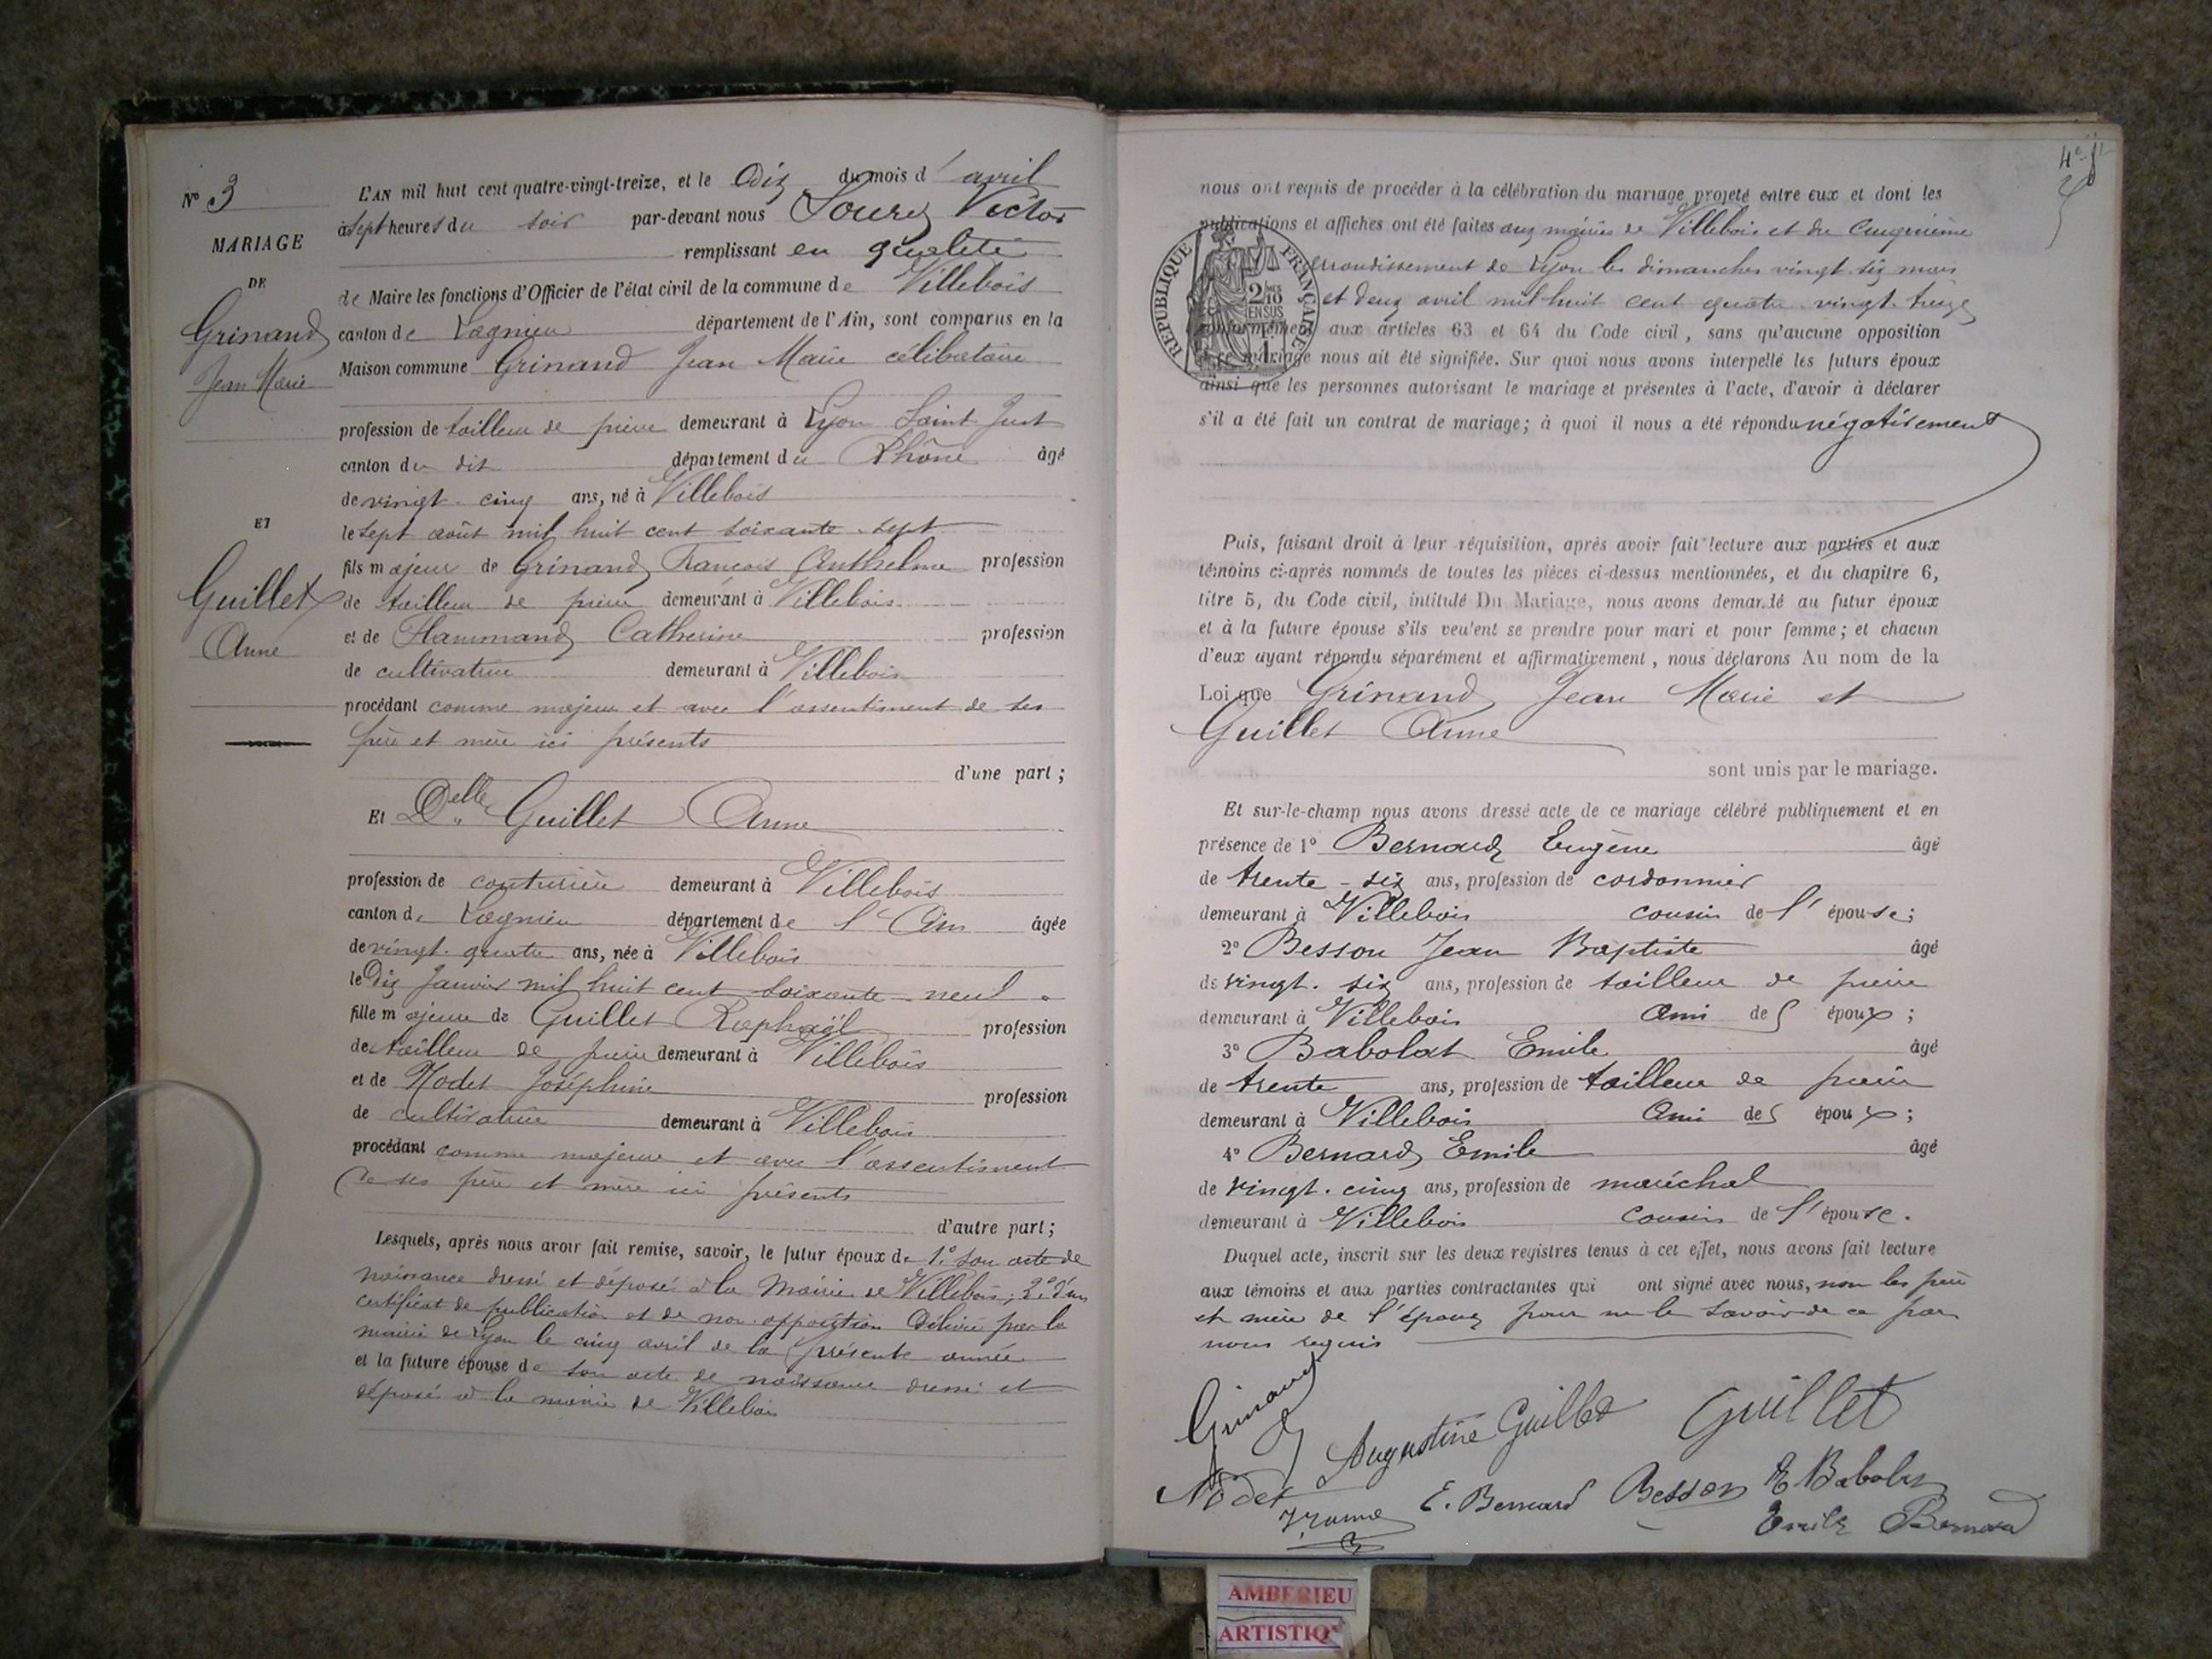 N° 3
MARIAGE
DE
Grinand
Jean Marie
ET
Guillet
Anne
L'AN mil huit cent quatre-vingt-treize, et le Dix du mois d'avril
à sept heures du soir par-devant nous Victor
remplissant en qualité
de Maire les fonctions d'Officier de l'état civil de la commune de Villebois
canton de Lagnieu département de l'Ain, sont comparus en la
Maison commune Grinand Jean Marie célibataire
profession de tailleur de pierre demeurant à Lyon Saint Just
canton du dit département du Rhône âgé
de vingt-cinq ans, né à Villebois
le sept août mil huit cent soixante-sept
fils majeur de Grinand François Anthelme profession
de tailleur de pierre demeurant à Villebois
et de Flammand Catherine profession
de cultivatrice demeurant à Villebois
procédant comme majeur et avec l'assentiment de ses
père et mère ici présents
d'une part ;
Et Delle Guillet Anne
profession de couturière demeurant à Villebois
canton de Lagnieu département de l'Ain âgée
de vingt-quatre ans, née à Villebois
le Dix Janvier mil huit cent soixante-neuf
fille majeure de Guillet Raphaël profession
de tailleur de pierre demeurant à Villebois
et de Nodet Joséphine profession
de cultivatrice demeurant à Villebois
procédant comme majeure et avec l'assentiment
de ses père et mère ici présents
d'autre part ;
Lesquels, après nous avoir fait remise, savoir, le futur époux de 1° son acte de
naissance dressé et déposé à la Mairie de Villebois ; 2° d'un
certificat de publication et de non-opposition délivré par la
mairie de Lyon le cinq avril de la présente année
et la future épouse de son acte de naissance dressé et
déposé à la mairie de Villebois
4e
nous ont requis de procéder à la célébration du mariage projeté entre eux et dont les
publications et affiches ont été faites aux mairies de Villebois et du Cinquième
arrondissement de Lyon les dimanches vingt-six mars
et deux avril mil huit cent quatre-vingt-treize
conformément aux articles 63 et 64 du Code civil, sans qu'aucune opposition
à ce mariage nous ait été signifiée. Sur quoi nous avons interpellé les futurs époux
ainsi que les personnes autorisant le mariage et présentes à l'acte, d'avoir à déclarer
s'il a été fait un contrat de mariage; à quoi il nous a été répondu négativement
RÉPUBLIQUE FRANÇAISE
2/10 EN SUS
Puis, faisant droit à leur réquisition, après avoir fait lecture aux parties et aux
témoins ci-après nommés de toutes les pièces ci-dessus mentionnées, et du chapitre 6,
titre 5, du Code civil, intitulé Du Mariage, nous avons demandé au futur époux
et à la future épouse s'ils veulent se prendre pour mari et pour femme ; et chacun
d'eux ayant répondu séparément et affirmativement, nous déclarons Au nom de la
Loi que Grinand Jean Marie et
Guillet Anne
sont unis par le mariage.
Et sur-le-champ nous avons dressé acte de ce mariage célébré publiquement et en
présence de 1° Bernard Eugène âgé
de trente-six ans, profession de cordonnier
demeurant à Villebois cousin de l'épouse ;
2° Besson Jean Baptiste âgé
de vingt-six ans, profession de tailleur de pierre
demeurant à Villebois Ami des époux ;
3° Babolat Emile âgé
de trente ans, profession de tailleur de pierre
demeurant à Villebois Ami des époux ;
4° Bernard Emile âgé
de vingt-cinq ans, profession de maréchal
demeurant à Villebois cousin de l'épouse.
Duquel acte, inscrit sur les deux registres tenus à cet effet, nous avons fait lecture
aux témoins et aux parties contractantes qui ont signé avec nous, non les père
et mère de l'époux pour ne le savoir de ce par
nous requis
Grinand
Augustine Guillet
Guillet
Nodet
E. Bernard
Besson
E Babolat
Emile Bernard
AMBERIEU
ARTISTIQ